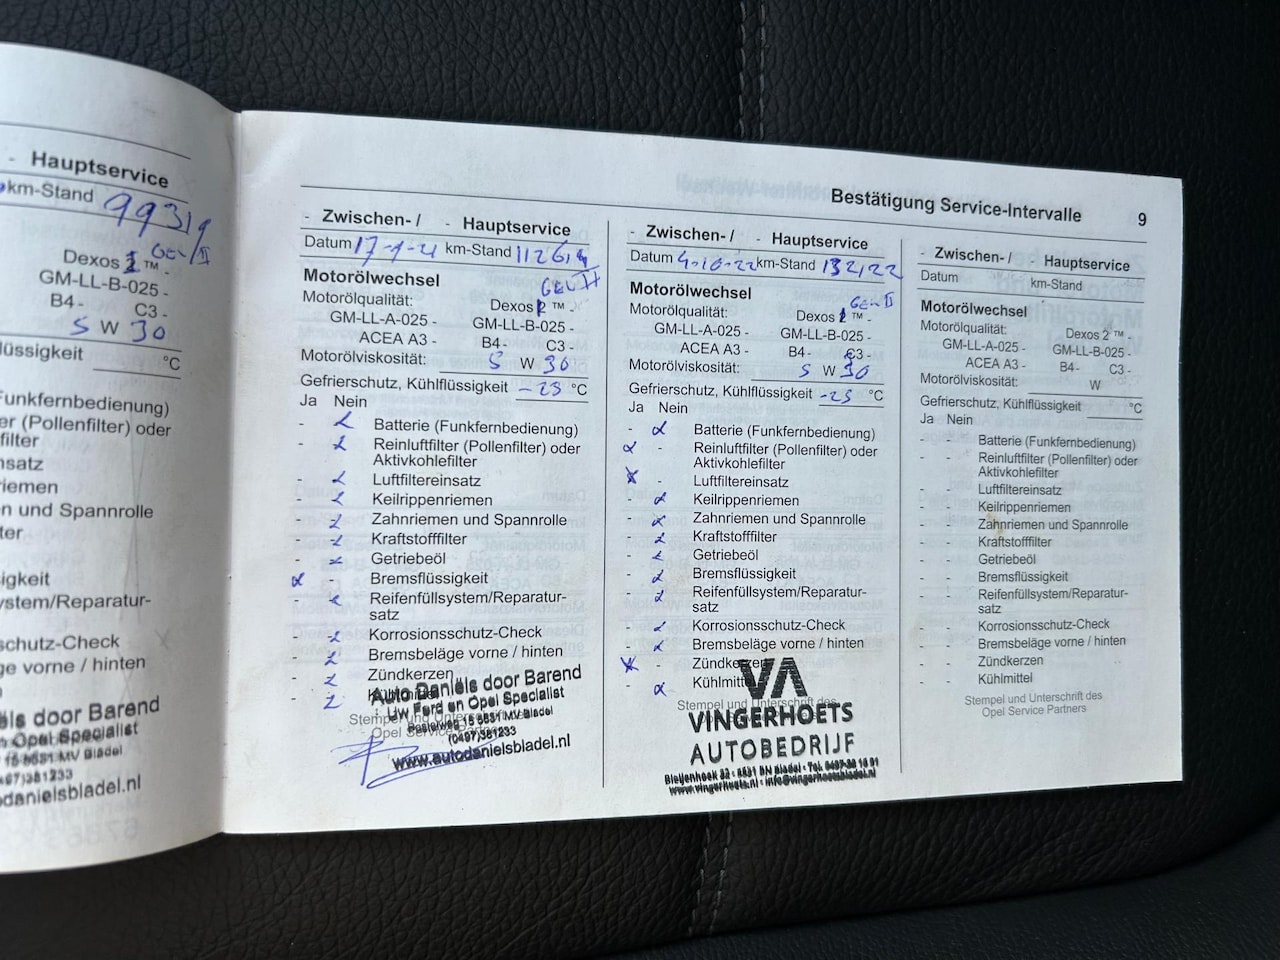 - Hauptservice
km-Stand 99319
Dexos 1 ™ - Gen II
GM-LL-B-025 -
B4 - C3 -
5 W 30
lüssigkeit °C
Funkfernbedienung)
er (Pollenfilter) oder
filter
nsatz
riemen
n und Spannrolle
ter
sigkeit
ystem/Reparatur-
schutz-Check
ge vorne / hinten
ls door Barend
n Opel Specialist
15 5531 MV Bladel
497)381233
odanielsbladel.nl
Bestätigung Service-Intervalle 9
- Zwischen- / - Hauptservice
Datum 17-1-21 km-Stand 112614
Motorölwechsel Gen II
Motorölqualität: Dexos ™ -
GM-LL-A-025 - GM-LL-B-025 -
ACEA A3 - B4 - C3 -
Motorölviskosität: 5 W 30
Gefrierschutz, Kühlflüssigkeit -25 °C
Ja Nein
- Batterie (Funkfernbedienung)
- Reinluftfilter (Pollenfilter) oder
Aktivkohlefilter
- Luftfiltereinsatz
- Keilrippenriemen
- Zahnriemen und Spannrolle
- Kraftstofffilter
- Getriebeöl
Bremsflüssigkeit
- Reifenfüllsystem/Reparatur-
satz
- Korrosionsschutz-Check
- Bremsbeläge vorne / hinten
- Zündkerzen
- Kühlmittel
Stempel und Unterschrift des
Opel Service Partners
Auto Daniëls door Barend
Uw Ford en Opel Specialist
15 5531 MV Bladel
(0497)381233
www.autodanielsbladel.nl
- Zwischen- / - Hauptservice
Datum 4-10-22 km-Stand 132122
Motorölwechsel Gen II
Motorölqualität: Dexos 1 ™ -
GM-LL-A-025 - GM-LL-B-025 -
ACEA A3 - B4 - C3 -
Motorölviskosität: 5 W 30
Gefrierschutz, Kühlflüssigkeit -25 °C
Ja Nein
- Batterie (Funkfernbedienung)
- Reinluftfilter (Pollenfilter) oder
Aktivkohlefilter
- Luftfiltereinsatz
- Keilrippenriemen
- Zahnriemen und Spannrolle
- Kraftstofffilter
- Getriebeöl
- Bremsflüssigkeit
- Reifenfüllsystem/Reparatur-
satz
- Korrosionsschutz-Check
- Bremsbeläge vorne / hinten
- Zündkerzen
- Kühlmittel
Stempel und Unterschrift des
VA
VINGERHOETS
AUTOBEDRIJF
Bleijenhoek 32 - 5531 BN Bladel - Tel. 0497-38 16 91
www.vingerhoets.nl - info@vingerhoetsbladel.nl
- Zwischen- / - Hauptservice
Datum km-Stand
Motorölwechsel
Motorölqualität: Dexos 2 ™ -
GM-LL-A-025 - GM-LL-B-025 -
ACEA A3 - B4 - C3 -
Motorölviskosität: W
Gefrierschutz, Kühlflüssigkeit °C
Ja Nein
- - Batterie (Funkfernbedienung)
- - Reinluftfilter (Pollenfilter) oder
Aktivkohlefilter
- - Luftfiltereinsatz
- - Keilrippenriemen
- - Zahnriemen und Spannrolle
- - Kraftstofffilter
- - Getriebeöl
- - Bremsflüssigkeit
- - Reifenfüllsystem/Reparatur-
satz
- - Korrosionsschutz-Check
- - Bremsbeläge vorne / hinten
- - Zündkerzen
- - Kühlmittel
Stempel und Unterschrift des
Opel Service Partners